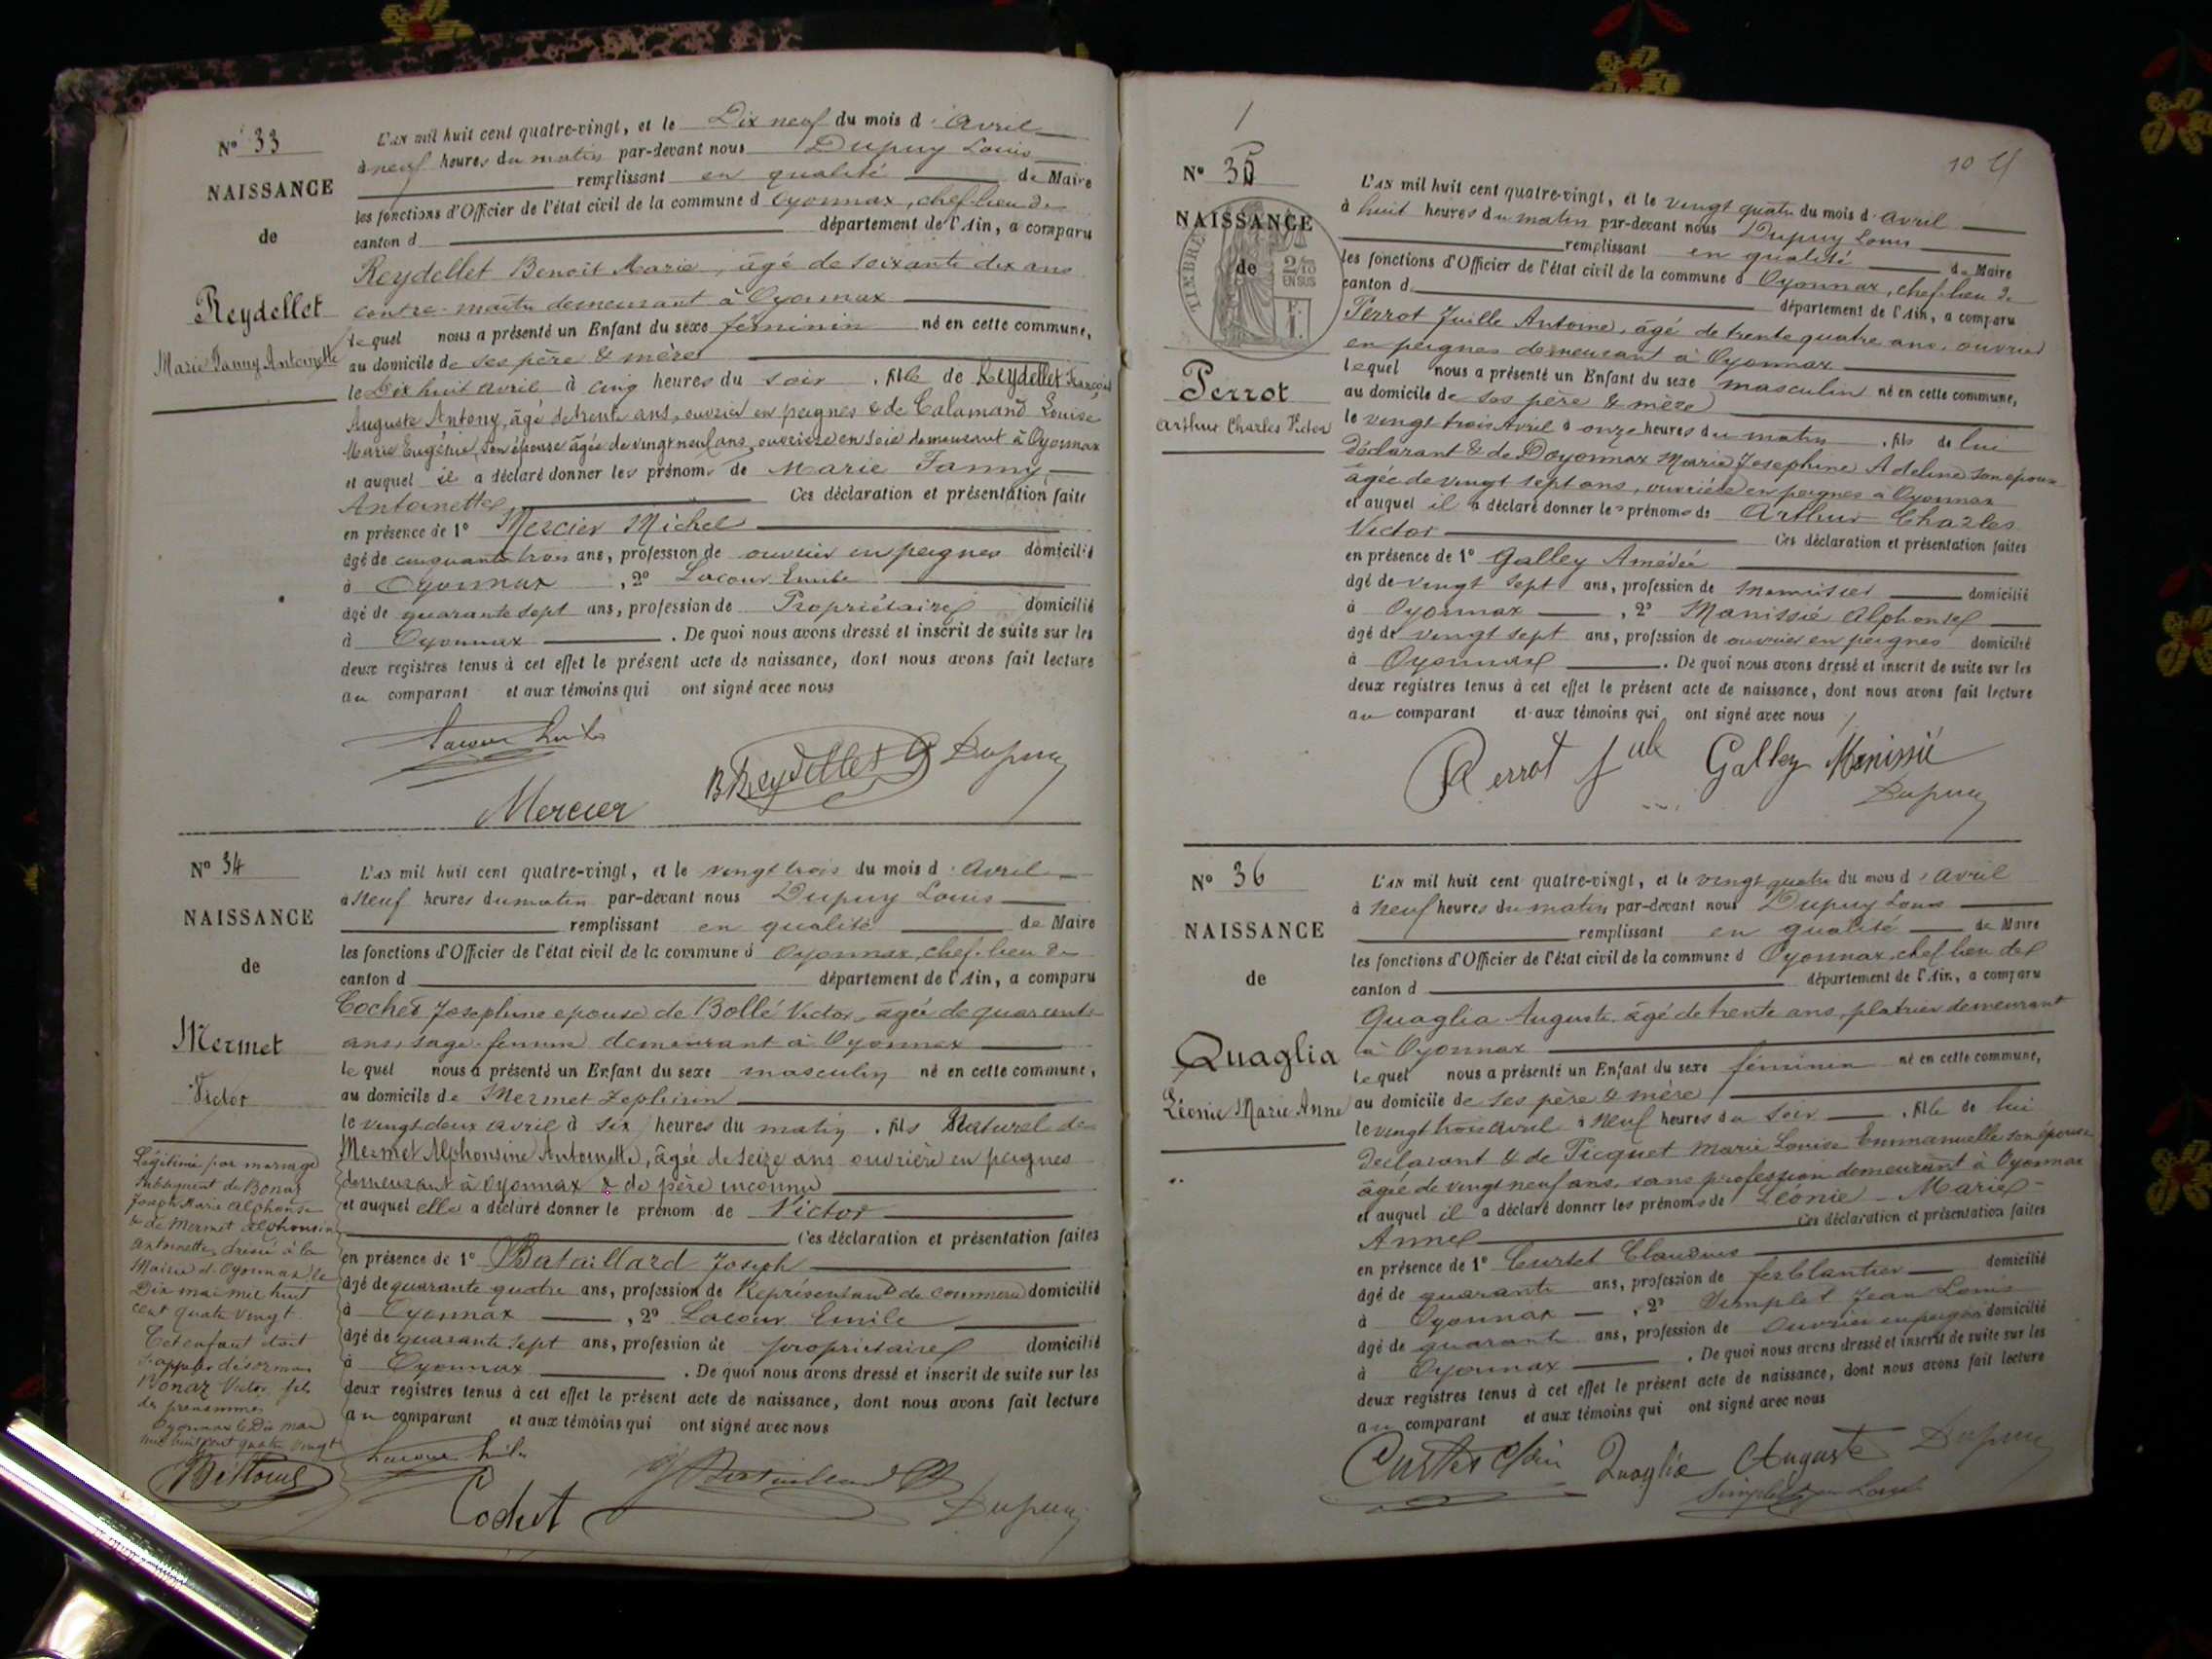 N° 33
NAISSANCE
de
Reydellet
Marie Fanny Antoinette
L'an mil huit cent quatre-vingt, et le Dix neuf du mois d'Avril
à neuf heures du matin par-devant nous Dupuy Louis
remplissant en qualité de Maire
les fonctions d'Officier de l'état civil de la commune d'Oyonnax, chef-lieu de
canton d département de l'Ain, a comparu
Reydellet Benoit Marie, âgé de soixante dix ans
contre-maître demeurant à Oyonnax
lequel nous a présenté un Enfant du sexe féminin né en cette commune,
au domicile de ses père & mère
le Dix huit avril à cinq heures du soir, fille de Reydellet François
Auguste Antony, âgé de trente ans, ouvrier en peignes & de Calamand Louise
Marie Eugénie, son épouse âgée de vingt neuf ans, ouvrière en soie demeurant à Oyonnax
et auquel il a déclaré donner les prénoms de Marie Fanny
Antoinette Ces déclaration et présentation faite
en présence de 1° Mercier Michel
âgé de cinquante trois ans, profession de ouvrier en peignes domicilié
à Oyonnax, 2° Lacour Emile
âgé de quarante sept ans, profession de Propriétaire domicilié
à Oyonnax. De quoi nous avons dressé et inscrit de suite sur les
deux registres tenus à cet effet le présent acte de naissance, dont nous avons fait lecture
au comparant et aux témoins qui ont signé avec nous
Lacour Emile
B Reydellet Dupuy
Mercier
N° 34
NAISSANCE
de
Mermet
Victor
Légitimé par mariage
subséquent de Bonaz
Joseph Marie Alphonse
& de Mermet Alphonsine
Antoinette, dressé à la
Mairie d'Oyonnax le
Dix mai mil huit
cent quatre vingt
Cet enfant doit
s'appeler désormais
Bonaz Victor fils
des prénommés
Oyonnax le Dix mai
mil huit cent quatre vingt
L'an mil huit cent quatre-vingt, et le vingt trois du mois d'Avril
à Neuf heures du matin par-devant nous Dupuy Louis
remplissant en qualité de Maire
les fonctions d'Officier de l'état civil de la commune d'Oyonnax, chef-lieu de
canton d département de l'Ain, a comparu
Cochet Josephine epouse de Bollé Victor, âgée de quarante
ans, sage-femme demeurant à Oyonnax
lequel nous a présenté un Enfant du sexe masculin né en cette commune,
au domicile de Mermet Zephirin
le vingt deux avril à six heures du matin, fils Naturel de
Mermet Alphonsine Antoinette, âgée de seize ans ouvrière en peignes
demeurant à Oyonnax & de père inconnu
et auquel elle a déclaré donner le prénom de Victor
Ces déclaration et présentation faites
en présence de 1° Bataillard Joseph
âgé de quarante quatre ans, profession de Représentant de commerce domicilié
à Oyonnax, 2° Lacour Emile
âgé de quarante sept ans, profession de propriétaire domicilié
à Oyonnax. De quoi nous avons dressé et inscrit de suite sur les
deux registres tenus à cet effet le présent acte de naissance, dont nous avons fait lecture
au comparant et aux témoins qui ont signé avec nous
Lacour Emile
Bataillard
Cochet Dupuy
N° 35
NAISSANCE
de
TIMBRE
2/10
EN SUS
Perrot
Arthur Charles Victor
L'an mil huit cent quatre-vingt, et le vingt quatre du mois d'avril
à huit heures du matin par-devant nous Dupuy Louis
remplissant en qualité de Maire
les fonctions d'Officier de l'état civil de la commune d'Oyonnax, chef-lieu de
canton d département de l'Ain, a comparu
Perrot Juille Antoine, âgé de trente quatre ans, ouvrier
en peignes demeurant à Oyonnax
lequel nous a présenté un Enfant du sexe masculin né en cette commune,
au domicile de ses père & mère
le vingt trois Avril à onze heures du matin, fils de lui
déclarant & de Doyonnax Marie Josephine Adeline son épouse
âgée de vingt sept ans, ouvrière en peignes à Oyonnax
et auquel il a déclaré donner les prénoms de Arthur Charles
Victor Ces déclaration et présentation faites
en présence de 1° Galley Amédée
âgé de vingt sept ans, profession de Menuisier domicilié
à Oyonnax, 2° Manissié Alphonse
âgé de vingt sept ans, profession de ouvrier en peignes domicilié
à Oyonnax. De quoi nous avons dressé et inscrit de suite sur les
deux registres tenus à cet effet le présent acte de naissance, dont nous avons fait lecture
au comparant et aux témoins qui ont signé avec nous
Perrot Galley Manissié
Dupuy
N° 36
NAISSANCE
de
Quaglia
Léonie Marie Anne
L'an mil huit cent quatre-vingt, et le vingt quatre du mois d'avril
à Neuf heures du matin par-devant nous Dupuy Louis
remplissant en qualité de Maire
les fonctions d'Officier de l'état civil de la commune d'Oyonnax, chef-lieu de
canton d département de l'Ain, a comparu
Quaglia Auguste, âgé de trente ans, platrier demeurant
à Oyonnax
lequel nous a présenté un Enfant du sexe féminin né en cette commune,
au domicile de ses père & mère
le vingt trois avril à Neuf heures du soir, fille de lui
déclarant & de Picquet Marie Louise Emmanuelle son épouse
âgée de vingt neuf ans, sans profession demeurant à Oyonnax
et auquel il a déclaré donner les prénoms de Léonie - Marie -
Anne Ces déclaration et présentation faites
en présence de 1° Curtet Claudius
âgé de quarante ans, profession de ferblantier domicilié
à Oyonnax, 2° Simplet Jean Louis
âgé de quarante ans, profession de ouvrier en peignes domicilié
à Oyonnax. De quoi nous avons dressé et inscrit de suite sur les
deux registres tenus à cet effet le présent acte de naissance, dont nous avons fait lecture
au comparant et aux témoins qui ont signé avec nous
Quaglia Auguste Dupuy